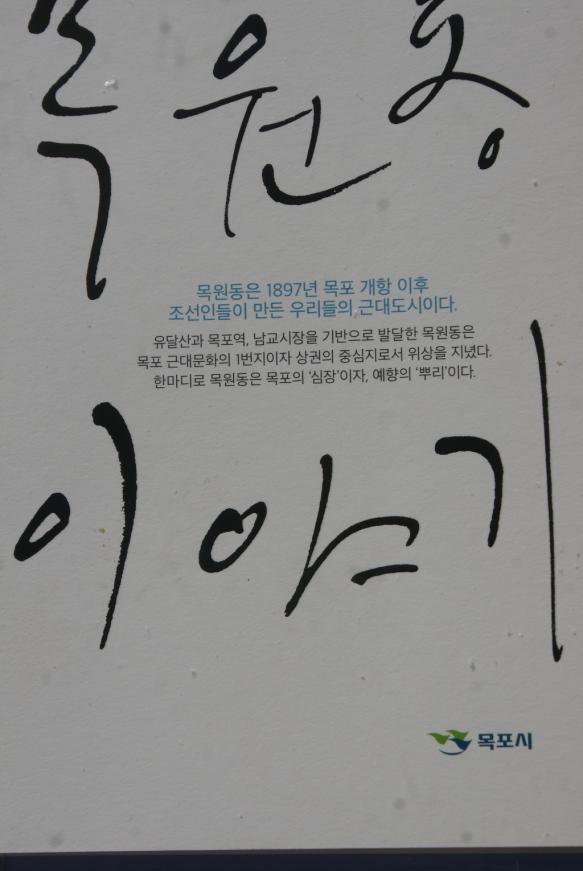 목원동
목원동은 1897년 목포 개항 이후
조선인들이 만든 우리들의 근대도시이다.
유달산과 목포역, 남교시장을 기반으로 발달한 목원동은
목포 근대문화의 1번지이자 상권의 중심지로서 위상을 지녔다.
한마디로 목원동은 목포의 '심장'이자, 예향의 '뿌리'이다.
이야기
목포시